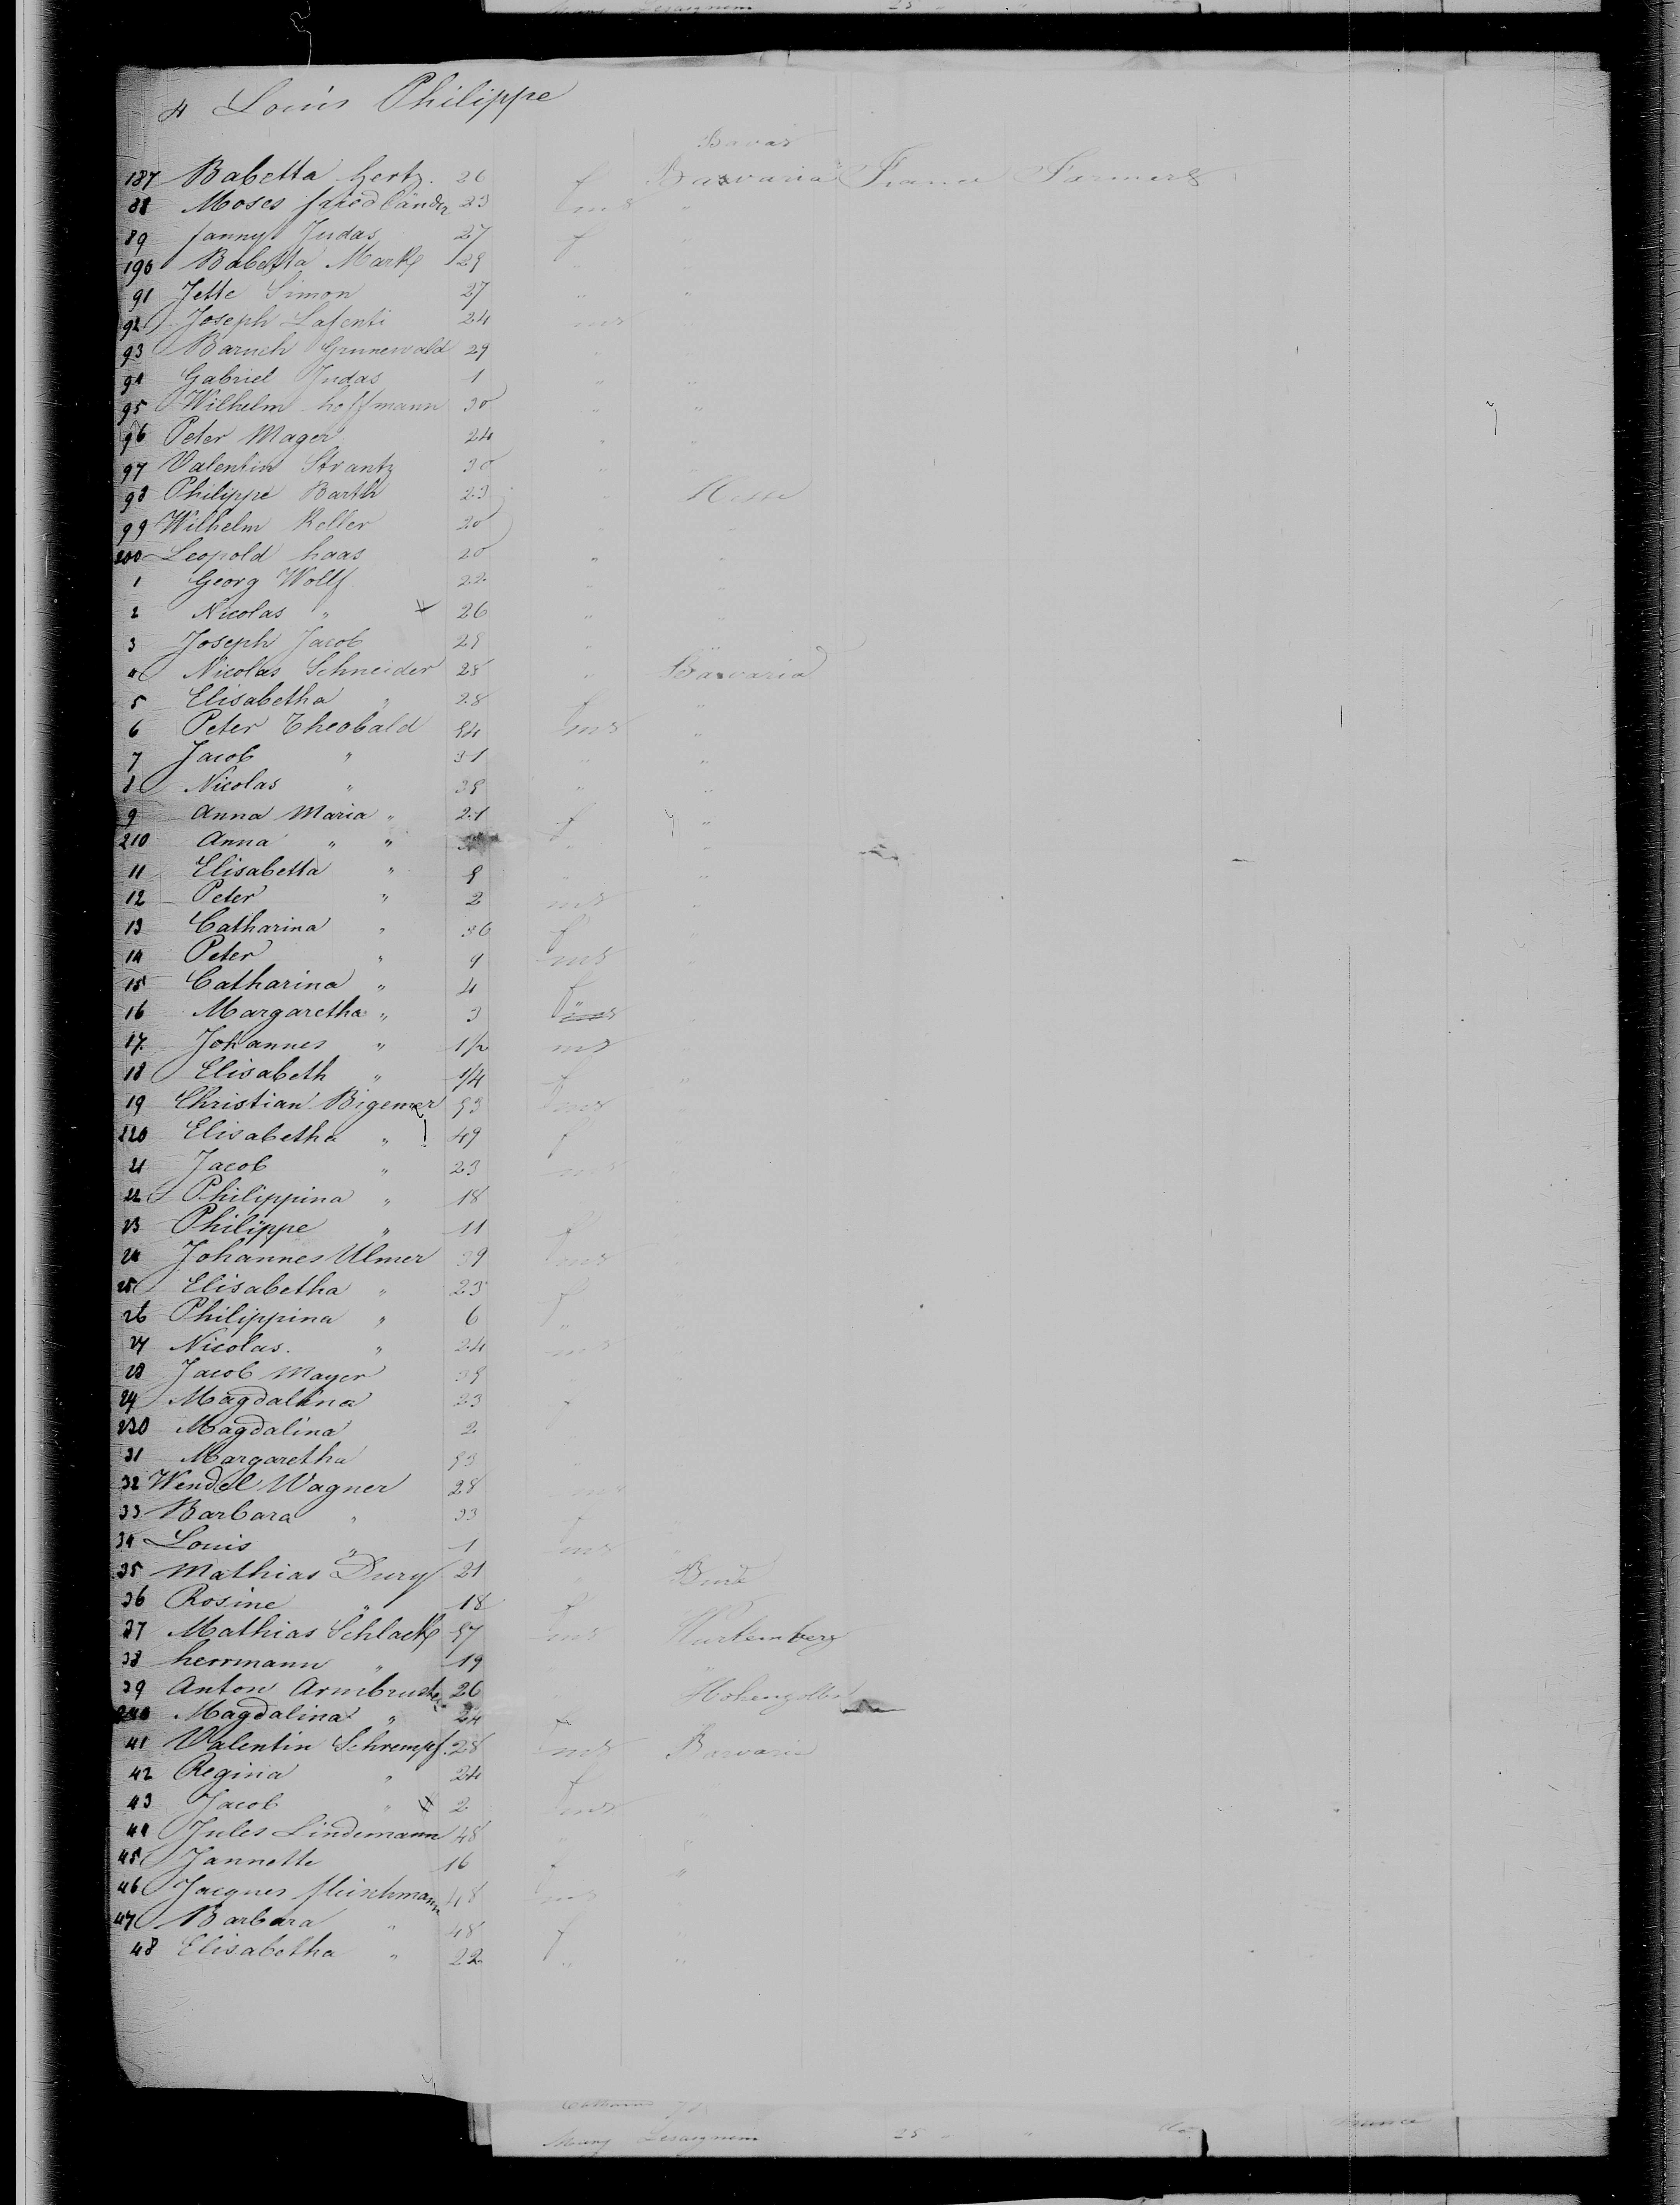 4 Louis Philippe
Bavar
187 Babetta Hertz. 26 f Bavaria France Farmers
88 Moses friedländer 23 m "
89 fanny Judas 27 f "
190 Babetta Mark 29 "
91 Jette Simon 27 " "
92 Joseph Lafenti 24 m "
93 Baruch Grunewald 29 "
94 Gabriel Judas 1 " "
95 Wilhelm hoffmann 30 " "
96 Peter Mager 24 " "
97 Valentin Strantz 30 " "
98 Philippe Barth 23 " Hesse
99 Wilhelm Keller 20 "
200 Leopold haas 20 " "
1 Georg Wolff 22 " "
2 Nicolas " x 26 " "
3 Joseph Jacob 29 " "
4 Nicolas Schneider 28 " Bavaria
5 Elisabetha " 28 f "
6 Peter Theobald 54 m "
7 Jacob " 31 " "
8 Nicolas " 39 " "
9 Anna Maria " 21 f "
210 Anna " " " "
11 Elisabetta " 9 " "
12 Peter " 2 m "
13 Catharina " 36 f
14 Peter " 9 m "
15 Catharina " 4 f
16 Margaretha " 3 "
17. Johannes " 1/2 m
18 Elisabeth " 1/4 f "
19 Christian Bigemer 53 m
220 Elisabetha " 49 f
21 Jacob " 23 m
22 Philippina " 18
23 Philippe " 11 f
24 Johannes Ulmer 39 m
25 Elisabetha " 23 f
26 Philippina " 6 "
27 Nicolas. " 24 m
28 Jacob Mayer 39
29 Magdalina 23 f
230 Magdalina 2
31 Margaretha 53
32 Wendel Wagner 28 m
33 Barbara " 33 f
34 Louis " 1 m "
35 Mathias Dury 21 "
36 Rosine " 18 f
37 Mathias Schlack 57 m Wurtemberg
38 herrmann " 19 "
39 Anton Armbruster 26 Hohenzollern
240 Magdalina " 24 f
41 Valentin Schrempf 28 m Bavaria
42 Regina " 24 f
43 Jacob " x 2 m "
44 Jules Lindemann 48 " "
45 Jannette 16 "
46 Jacques fleischmann 48 m
47 Barbara " 48 f "
48 Elisabetha " 22 " "
Mary 25 " France